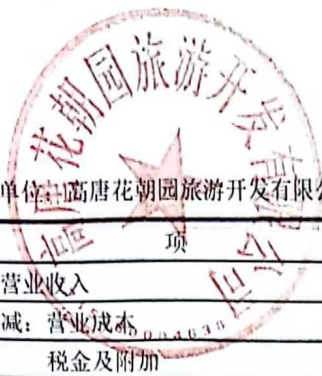 高唐花朝园旅游开发有限公司
单位：高唐花朝园旅游开发有限公
项
营业收入
减：营业成本
税金及附加